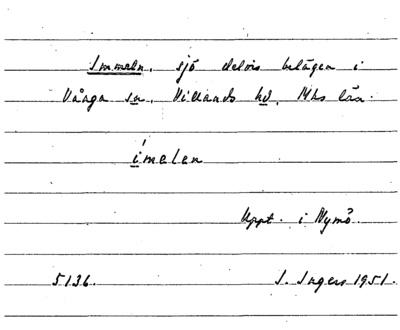 Immeln, sjö delvis belägen i
Vånga sn. Villands hd. Khs län.
ímelen
Uppt. i Nymö.
5136. I. Ingers 1951.